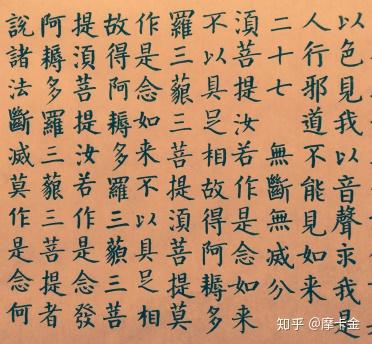 以色見我以音聲求我是
人行邪道不能見如来
二十七 無斷無滅分
湏菩提汝若作是念如来
不以具足相故得阿耨多
羅三藐三菩提湏菩提莫
作是念如来不以具足相
故得阿耨多羅三藐三菩
提湏菩提汝若作是念發
阿耨多羅三藐三菩提者
說諸法斷滅莫作是念何
知乎 @摩卡金